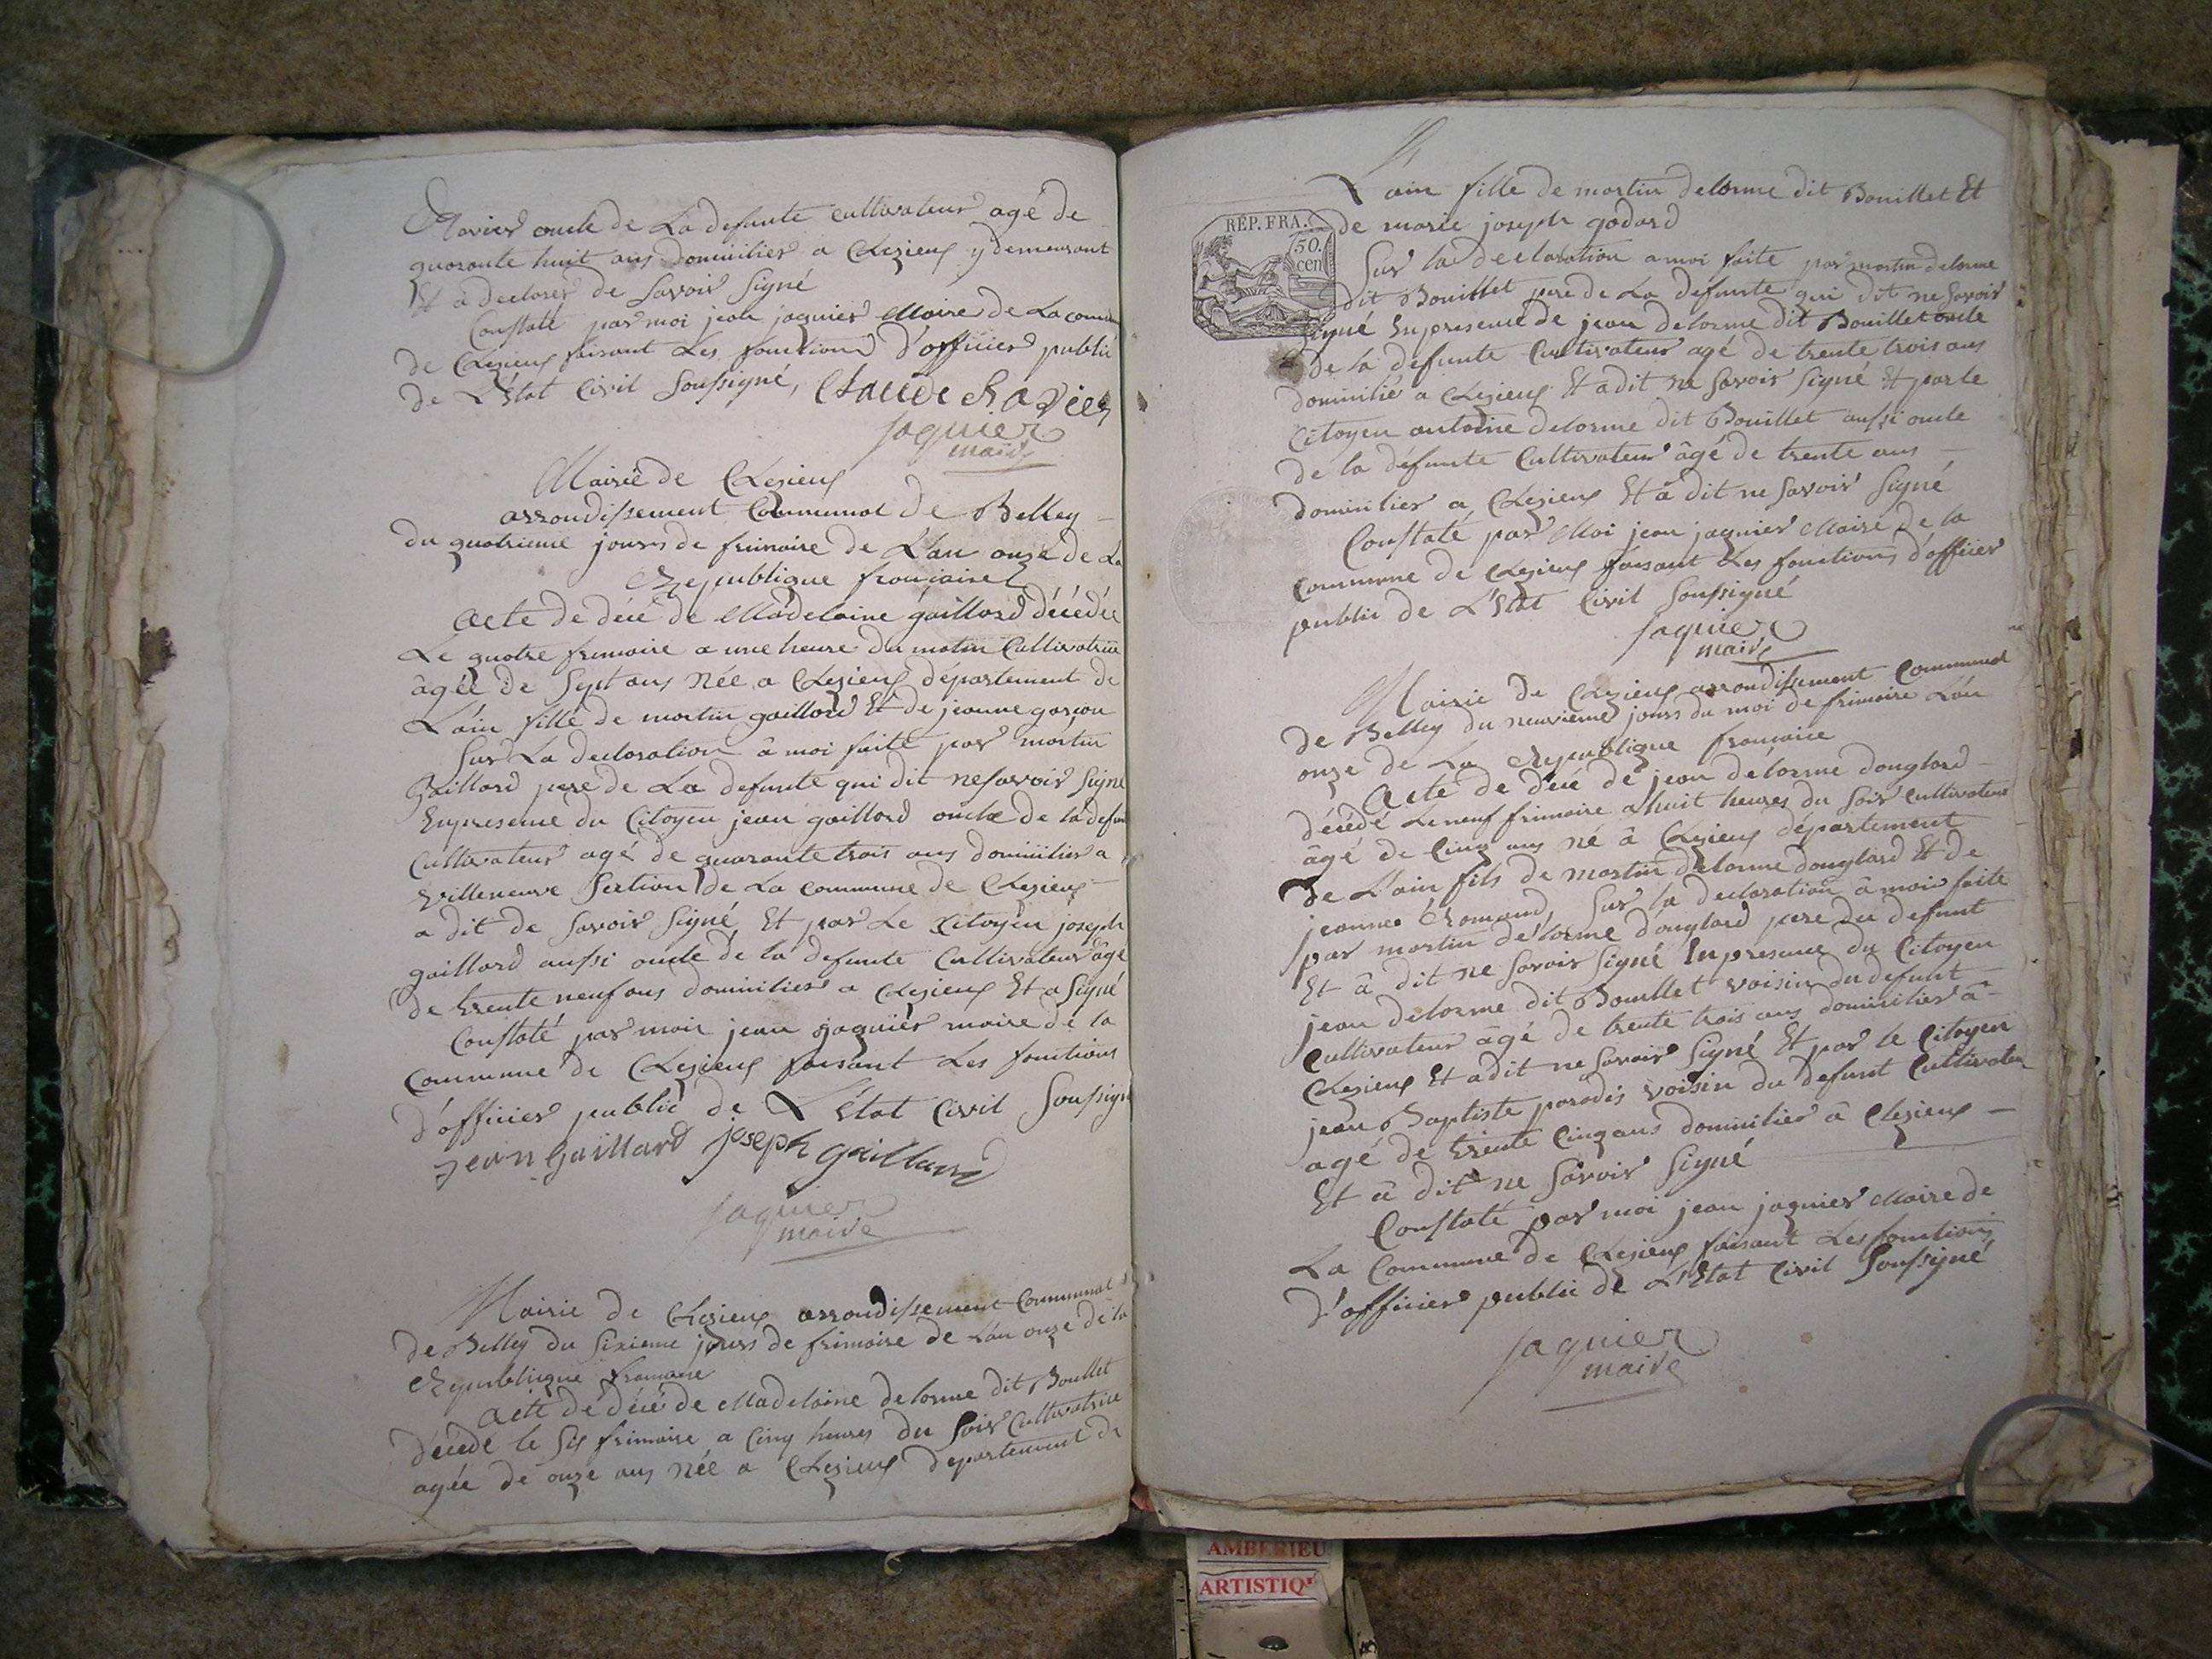 Ravier oncle de La defunte cultivateur agé de
quarante huit ans domicilier a Chezieux y demeurant
Et a declarer de Savoir Signé
Constaté par moi jean jaquier Maire de La comm
de Chezieux faisant Les fonctions d'officier public
de L'Etat Civil Soussigné, Claude Ravier
jaquier
maire
Mairie de Chezieux
arrondissement Communal de Belley
du quatrieme jours de frimaire de L'an onze de La
Republique francaise
Acte de décé de Madelaine gaillard décédée
Le quatre frimaire a une heure du matin Cultivatrice
âgée de Sept ans Née a Chezieux département de
L'ain fille de martin gaillard Et de jeanne garçon
Sur La declaration à moi faite par martin
Gaillard pere de La defunte qui dit ne Savoir Signé
Enpresence du Citoyen jean gaillard oncle de la defun
Cultivateur agé de quarante trois ans domicilier a
villeneuve Section de La commune de Chezieux
a dit de Savoir Signé Et par Le Citoyen joseph
gaillard aussi oncle de la defunte Cultivateur âgé
de trente neuf ans domicilier a Chezieux Et a Signé
Constaté par moi jean jaquier maire de la
commune de Chezieux faisant Les fonctions
d'officier public de L'État Civil Soussigné
jean Gaillard joseph gaillard
jaquier
maire
Mairie de Chezieux arrondissement Communal
de Belley du Sixieme jours de frimaire de L'an onze de la
Republique francaise
Acte de décé de Madelaine delorme dit Bouillet
décédé le Six frimaire a Cinq heures du Soir Cultivatrice
agée de onze ans Née a Chezieux departement de
L'ain fille de martin delorme dit Bouillet Et
de marie joseph godard
REP. FRA.
50.
cen
Sur la declaration a moi faite par martin delorme
dit Bouillet pere de La defunte qui dit ne Savoir
Signé Enpresence de jean delorme dit Bouillet oncle
de la defunte Cultivateur agé de trente trois ans
domicilié a Chezieux Et a dit ne Savoir Signé Et par le
Citoyen antoine delorme dit Bouillet aussi oncle
de la défunte Cultivateur âgé de trente ans
domicilier a Chezieux Et à dit ne Savoir Signé
Constaté par Moi jean jaquier Maire de la
commune de Chezieux faisant Les fonctions d'officier
public de L'Etat Civil Soussigné
jaquier
maire
Mairie de Chezieux arrondissement Communal
de Belley du neuvieme jours du moi de frimaire L'an
onze de La Republique francaise
Acte de décé de jean delorme donglard
décédé Le neuf frimaire a huit heures du Soir Cultivateur
âgé de Cinq ans né à Chezieux département
de L'ain fils de martin delorme donglard Et de
jeanne Sur la declaration à moi faite
par martin delorme donglard pere du defunt
Et à dit ne Savoir Signé Enpresence du Citoyen
jean delorme dit Bouillet voisin du defunt
Cultivateur âgé de trente trois ans domicilier à
Chezieux Et a dit ne Savoir Signé Et par le Citoyen
jean Baptiste paradis voisin du defunt Cultivateur
agé de trente Cinq ans domicilier à Chezieux
Et à dit ne Savoir Signé
Constaté par moi jean jaquier Maire de
La Commune de Chezieux faisant Les fonctions
d'officier public de L'Etat Civil Soussigné
jaquier
maire
AMBERIEU
ARTISTIQ